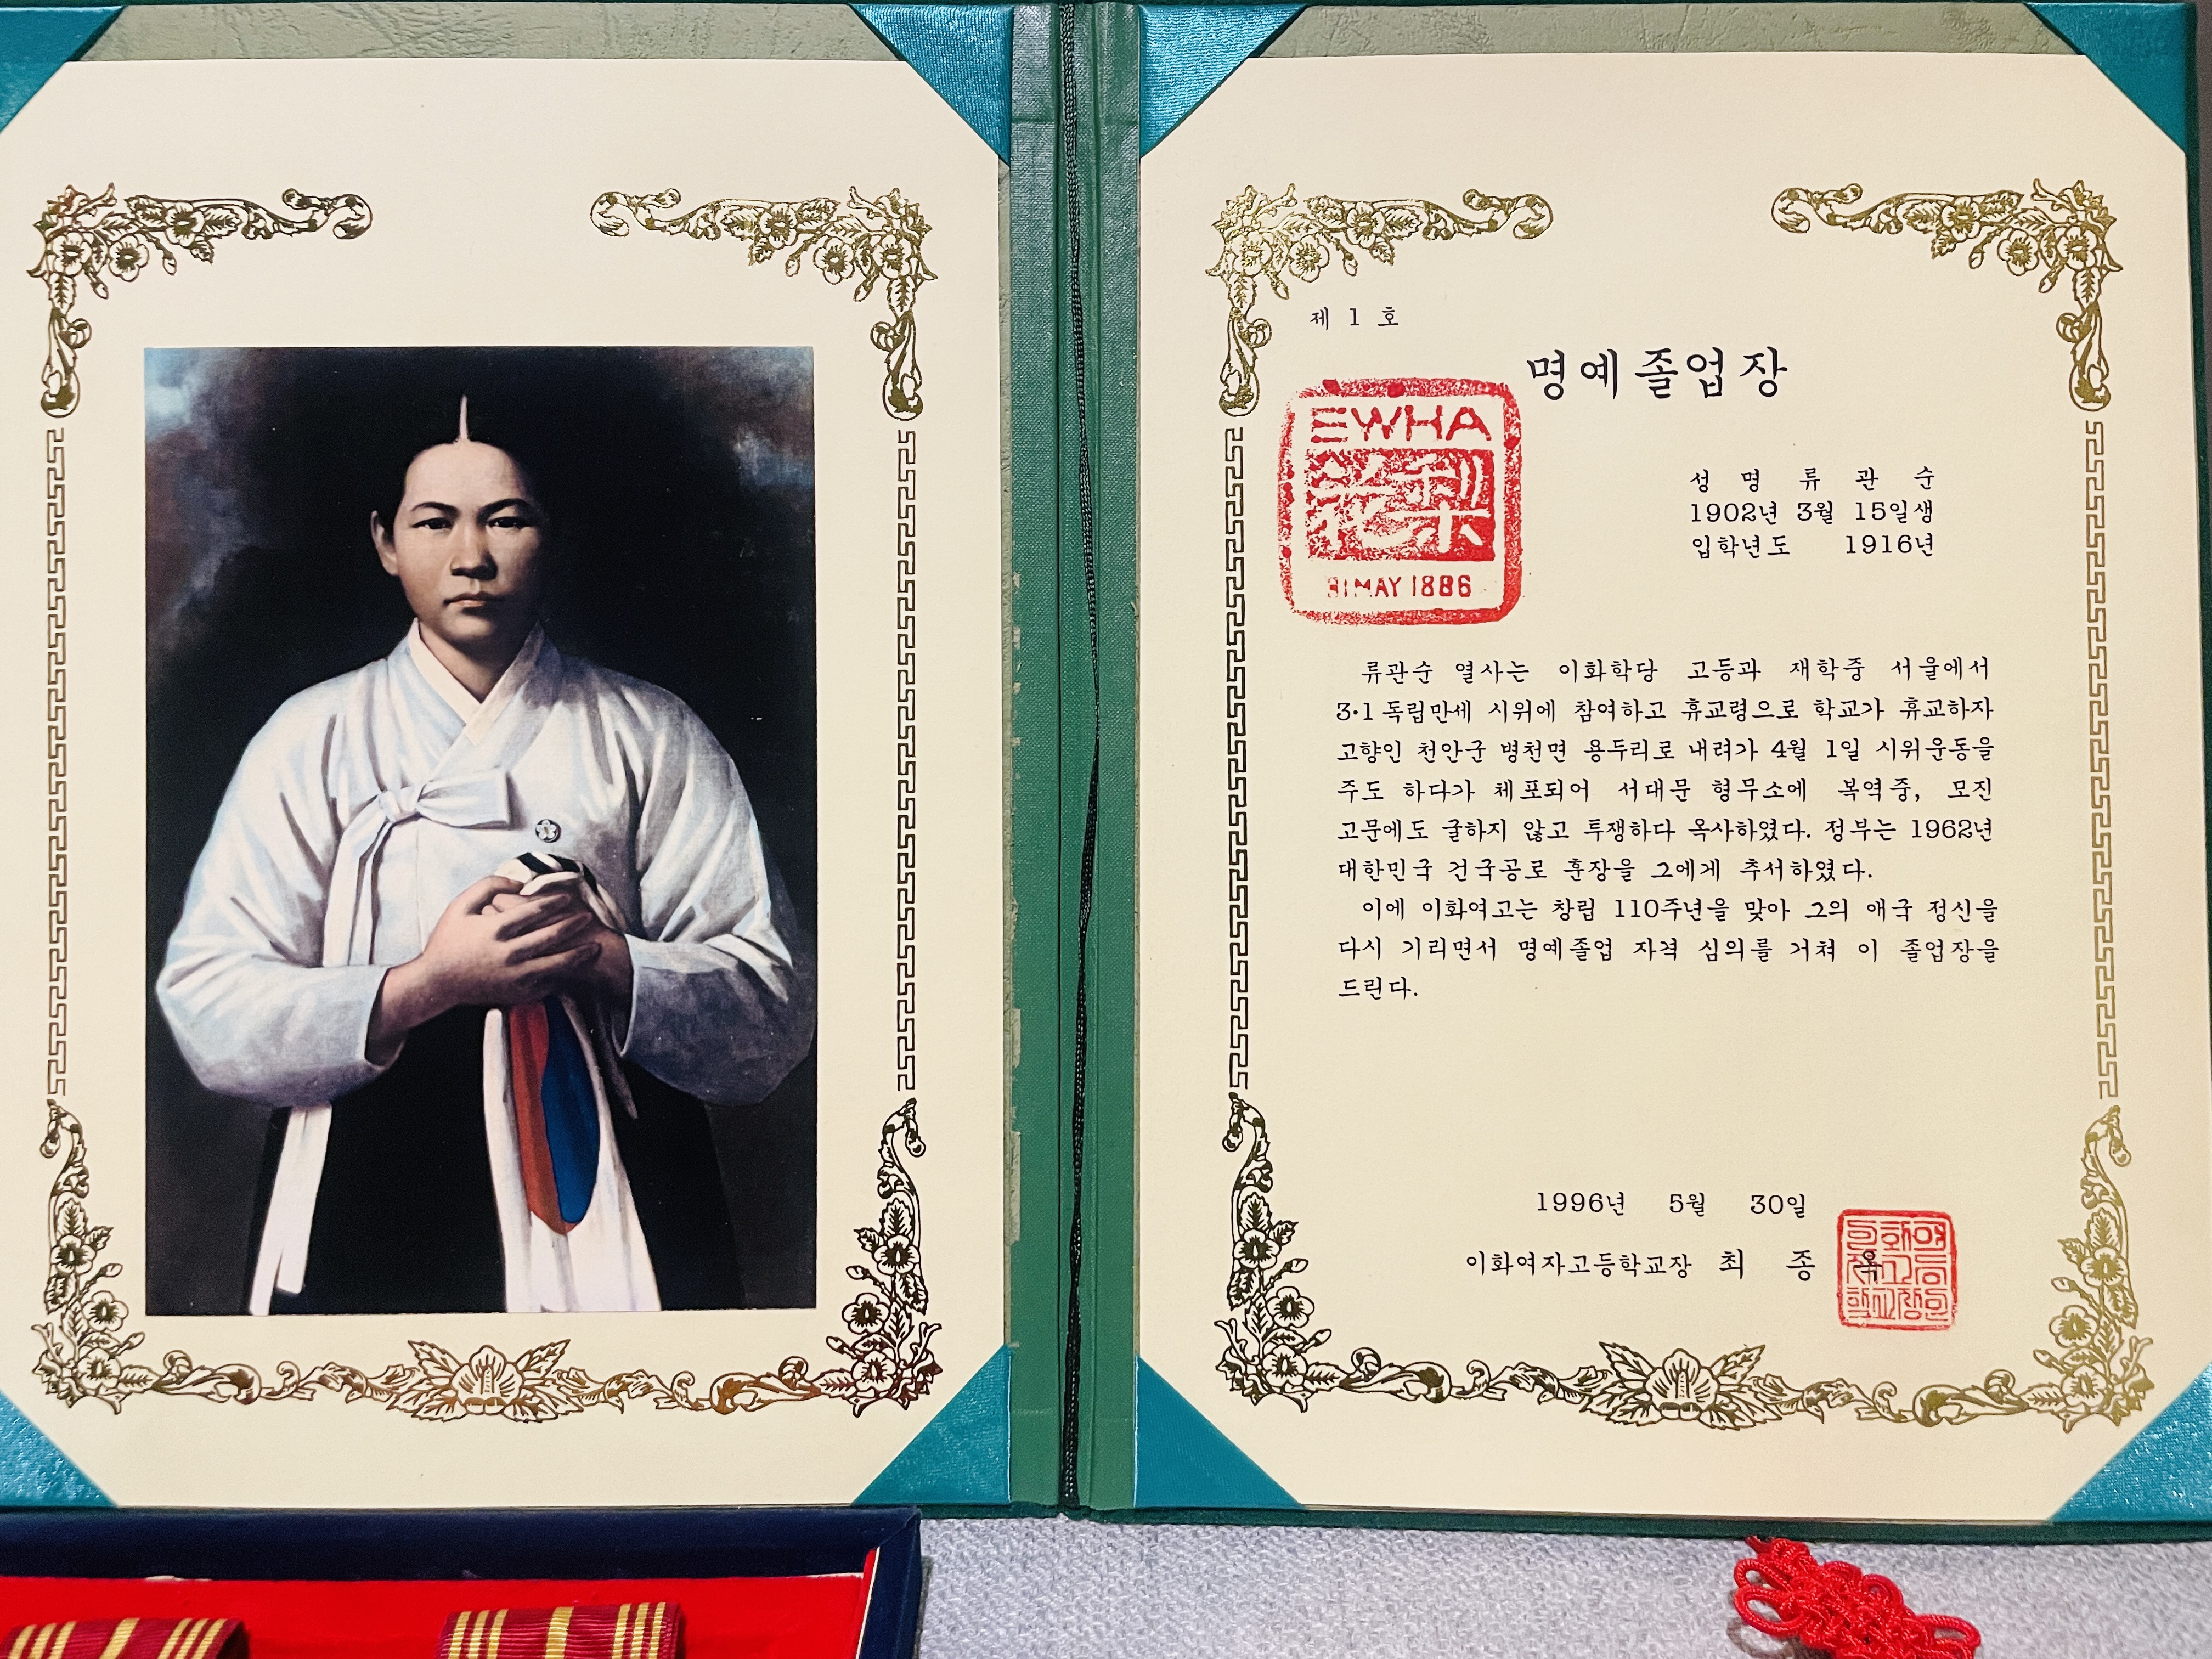 제 1 호
명예졸업장
EWHA
梨花
31 MAY 1886
성 명 류 관 순
1902년 3월 15일생
입학년도 1916년
류관순 열사는 이화학당 고등과 재학중 서울에서
3·1 독립만세 시위에 참여하고 휴교령으로 학교가 휴교하자
고향인 천안군 병천면 용두리로 내려가 4월 1일 시위운동을
주도 하다가 체포되어 서대문 형무소에 복역중, 모진
고문에도 굴하지 않고 투쟁하다 옥사하였다. 정부는 1962년
대한민국 건국공로 훈장을 그에게 추서하였다.
이에 이화여고는 창립 110주년을 맞아 그의 애국 정신을
다시 기리면서 명예졸업 자격 심의를 거쳐 이 졸업장을
드린다.
1996년 5월 30일
이화여자고등학교장 최 종 옥